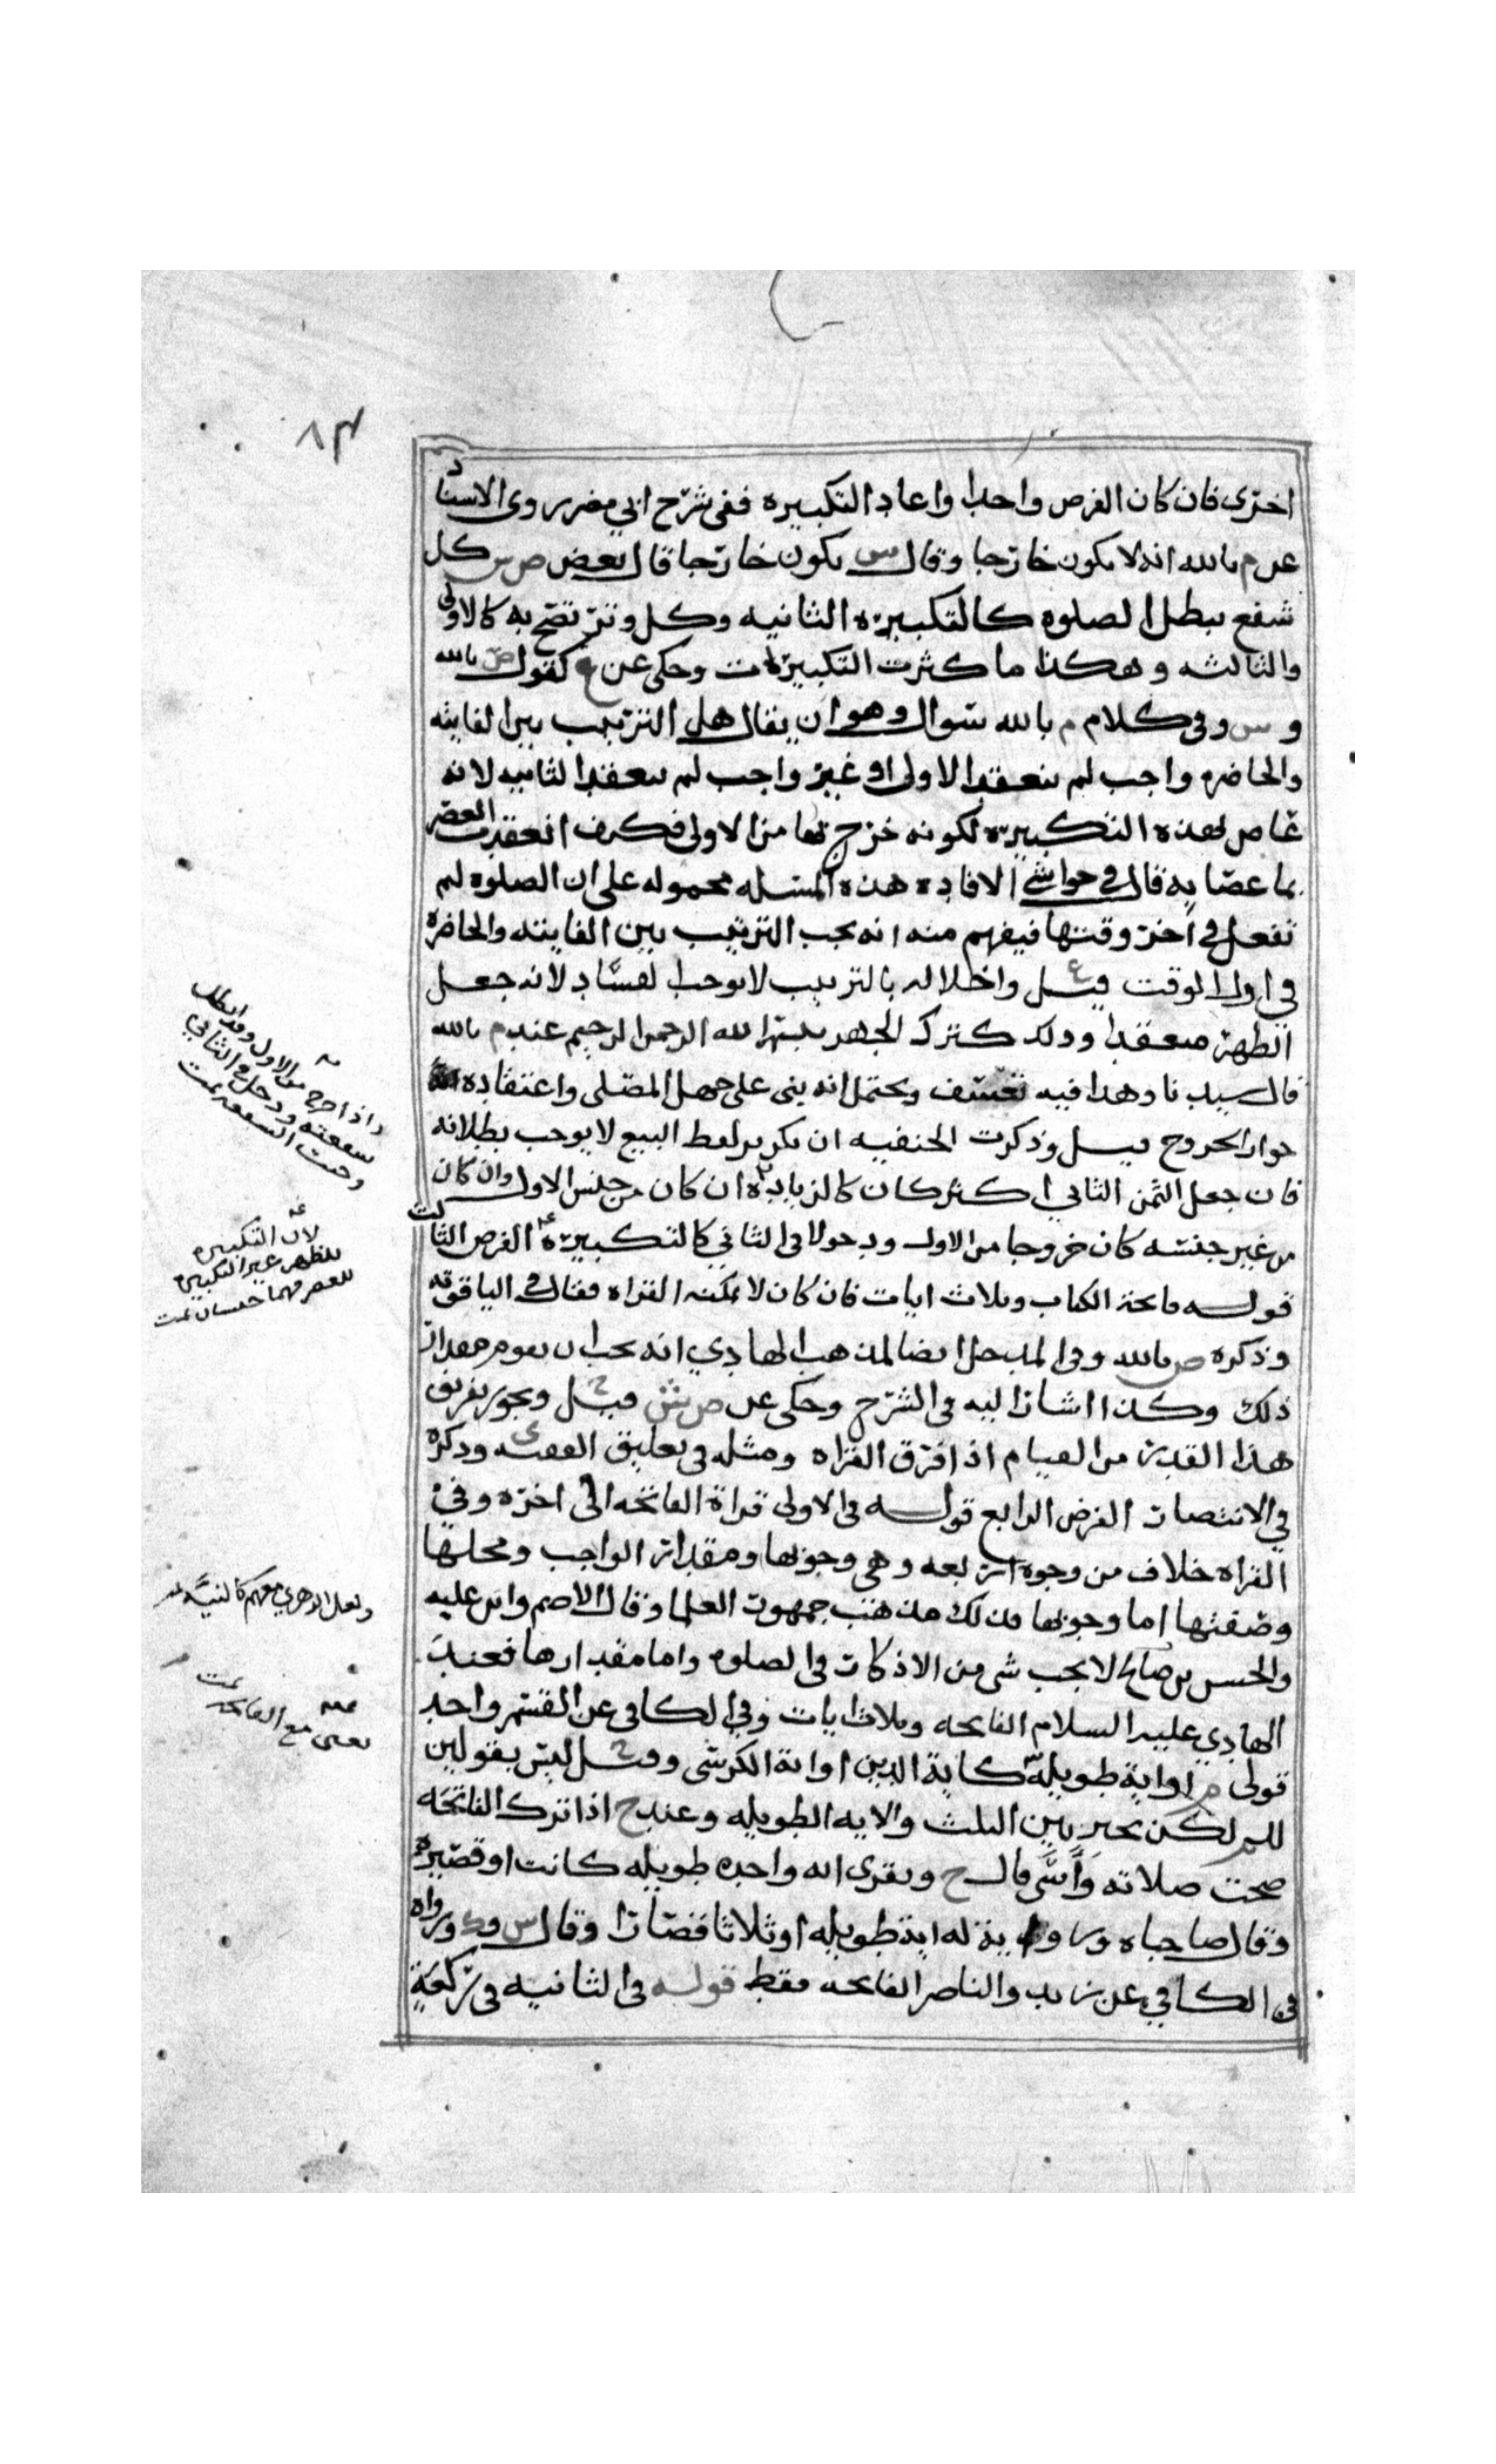 ٨٣
اخرى فان كان الفرض واحدا واعاد التكبيره ففى شرح ابي مضر روى الاستاد
عن م بالله انه لا يكون خارجا وقال س يكون خارجا قال بعض ص س كل
شفع يبطل الصلوه كالتكبيره الثانيه وكل وتر تصح به كالاولى
والثالثه وهكذا ما كثرت التكبيرات وحكى عن ع كقول ص بالله
و س وفى كلام م بالله سوال وهو ان يقال هل الترتيب بين الفايته
والحاضره واجب لم تنعقد الاولى او غير واجب لم تنعقد الثانيه لانه
عاص بهذه التكبيره لكونه خرج بها من الاولى فكيف انعقدت العصر
بما عصا به قال فى حواشي الافاده هذه المسله محموله على ان الصلوه لم
تفعل فى اخر وقتها فيفهم منه انه يجب الترتيب بين الفايته والحاضره
فى اول الوقت قيل ع واخلاله بالترتيب لا يوجب الفساد لانه جعل
الظهر منعقدا وذلك كترك الجهر ببسم الله الرحمن الرحيم عند م بالله
قال سيدنا وهذا فيه تعسف ويحتمل انه بنى على جهل المصلى واعتقاده
جواز الخروج قيل وذكرت الحنفيه ان تكرير لفظ البيع لا يوجب بطلانه
فان جعل الثمن الثاني اكثر كان كالزياده ان كان من جنس الاول وان كان
من غير جنسه كان خروجا من الاول ودخولا فى الثاني كالتكبيره الفرض الثالث
قوله فاتحة الكتاب وثلاث ايات فان كان لا يمكنه القراه فقال فى الياقوته
وذكره ص بالله وفى المدخل ايضا لمذهب الهادي انه يجب ان يقوم مقدار
ذلك وكذا اشار اليه فى الشرح وحكى عن ص ش قيل ح ويجوز تفريق
هذا القدر من القيام اذا فرق القراه ومثله فى تعليق الفقيه ى وذكره
في الانتصار الفرض الرابع قوله فى الاولى قراة الفاتحه الى اخره وفى
القراه خلاف من وجوه اربعه وهى وجوبها ومقدار الواجب ومحلها
وصفتها اما وجوبها فذلك مذهب جمهور العلما وقال الاصم وابن عليه
والحسن بن صالح لا يجب شى من الاذكار فى الصلوه واما مقدارها فعند
الهادي عليه السلام الفاتحه وثلاث ايات وفى الكافى عن القسم واحد
قولى م او اية طويله كاية الدين او اية الكرسى وقيل ح ليس بقولين
للم لكن يخير بين الثلث والايه الطويله وعند ح اذا ترك الفاتحه
صحت صلاته وأسى قال ح ويقرى ايه واحده طويله كانت او قصيره
وقال صاحباه اية طويله او ثلاثا قصارا وقال س وك ورواه
فى الكافي عن زيد والناصر الفاتحه فقط قوله فى الثانيه فى ركعة
واذا خرج من الاول وقد ابطل
شفعته ودخل فى الثاني
وجبت الشفعه تمت
لان التكبيره
للظهر غير التكبيره
للعصر فهما جنسان تمت
ولعل الزهري معهم كالنية
يعنى مع الفاتحه تمت